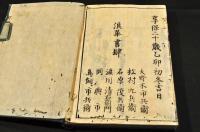 享保二十歳乙卯 吉日
浪華書肆
大野木市兵衛
松村九兵衛
石原茂兵衛
澁川清右衛門
鳥飼市兵衛